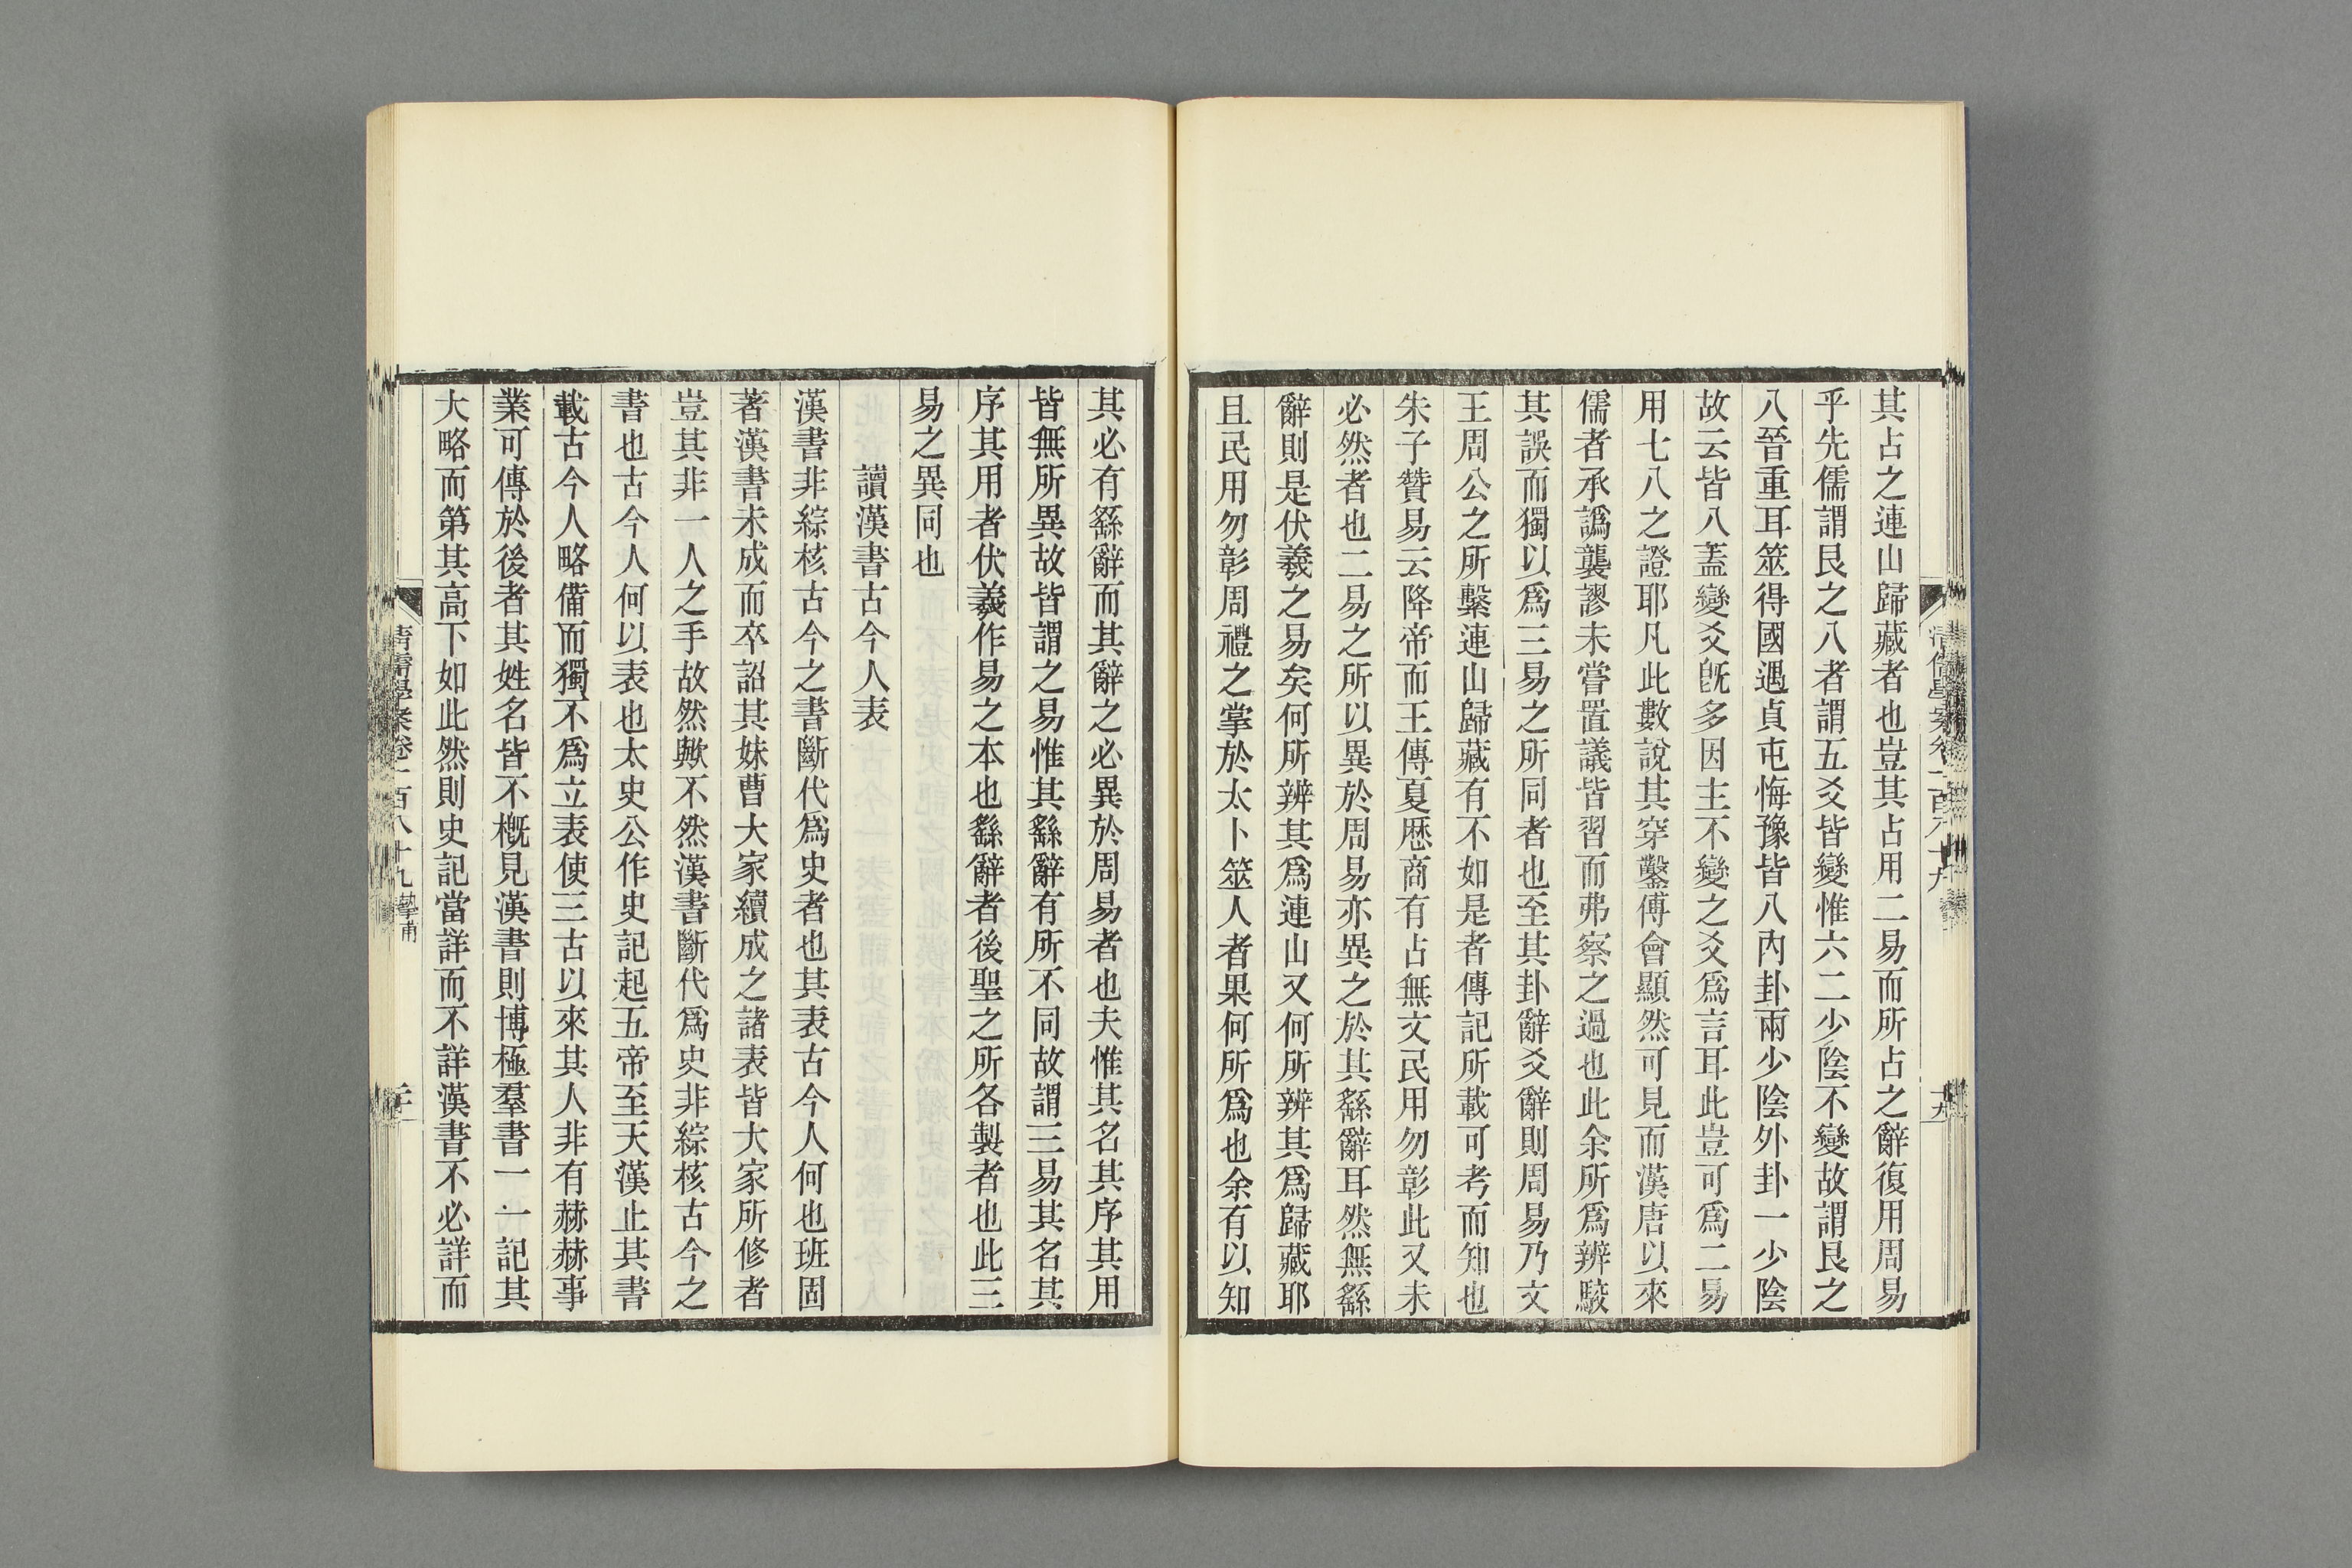 其占之連山歸藏者也豈其占用二易而所占之辭復用周易
乎先儒謂艮之八者謂五爻皆變惟六二少陰不變故謂艮之
八晉重耳筮得國遇貞屯悔豫皆八內卦兩少陰外卦一少陰
故云皆八蓋變爻旣多因主不變之爻爲言耳此豈可爲二易
用七八之證耶凡此數說其穿鑿傅會顯然可見而漢唐以來
儒者承譌襲謬未嘗置議皆習而弗察之過也此余所爲辨駮
其誤而獨以爲三易之所同者也至其卦辭爻辭則周易乃文
王周公之所繫連山歸藏有不如是者傳記所載可考而知也
朱子贊易云降帝而王傳夏歷商有占無文民用勿彰此又未
必然者也二易之所以異於周易亦異之於其繇辭耳然無繇
辭則是伏羲之易矣何所辨其爲連山又何所辨其爲歸藏耶
且民用勿彰周禮之掌於太卜筮人者果何所爲也余有以知
其必有繇辭而其辭之必異於周易者也夫惟其名其序其用
皆無所異故皆謂之易惟其繇辭有所不同故謂三易其名其
序其用者伏羲作易之本也繇辭者後聖之所各製者也此三
易之異同也
讀漢書古今人表
漢書非綜核古今之書斷代爲史者也其表古今人何也班固
著漢書未成而卒詔其妹曹大家續成之諸表皆大家所修者
豈其非一人之手故然歟不然漢書斷代爲史非綜核古今之
書也古今人何以表也太史公作史記起五帝至天漢止其書
載古今人略備而獨不爲立表使三古以來其人非有赫赫事
業可傳於後者其姓名皆不槪見漢書則博極羣書一一記其
大略而第其高下如此然則史記當詳而不詳漢書不必詳而
清儒學案卷一百八十九 摯甫